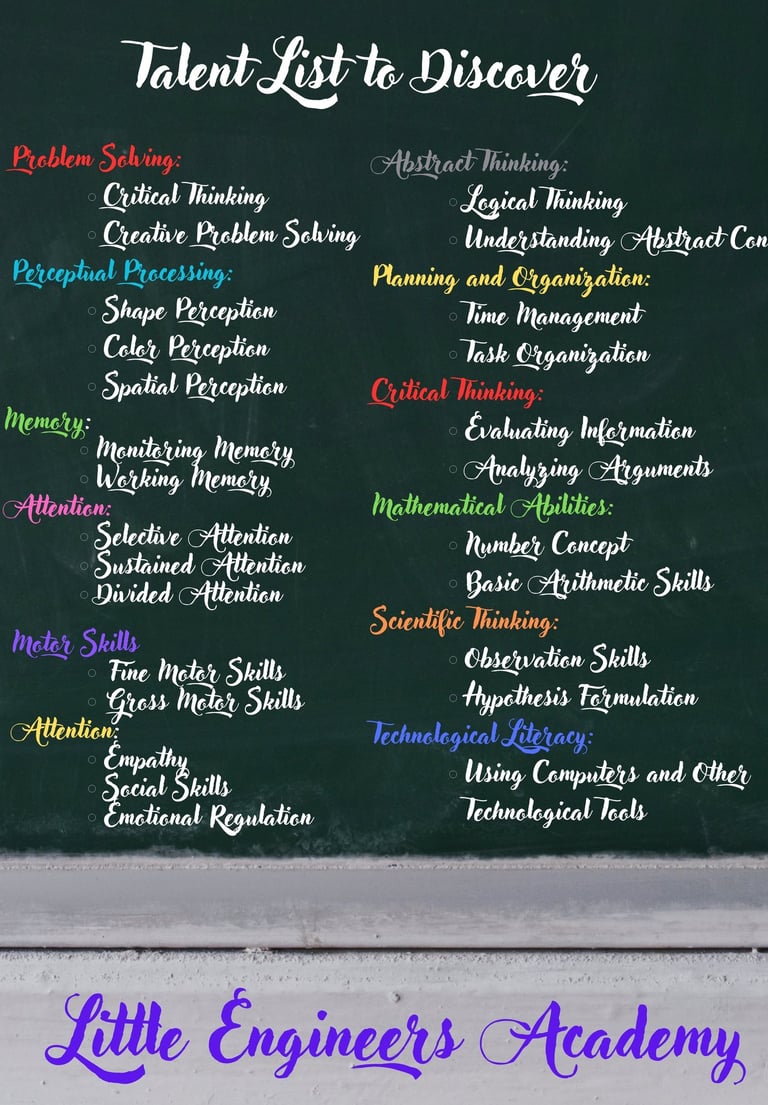 Talent List to Discover
Problem Solving:
Critical Thinking
Creative Problem Solving
Perceptual Processing:
Shape Perception
Color Perception
Spatial Perception
Memory:
Monitoring Memory
Working Memory
Attention:
Selective Attention
Sustained Attention
Divided Attention
Motor Skills
Fine Motor Skills
Gross Motor Skills
Attention:
Empathy
Social Skills
Emotional Regulation
Abstract Thinking:
Logical Thinking
Understanding Abstract Con
Planning and Organization:
Time Management
Task Organization
Critical Thinking:
Evaluating Information
Analyzing Arguments
Mathematical Abilities:
Number Concept
Basic Arithmetic Skills
Scientific Thinking:
Observation Skills
Hypothesis Formulation
Technological Literacy:
Using Computers and Other
Technological Tools
Little Engineers Academy